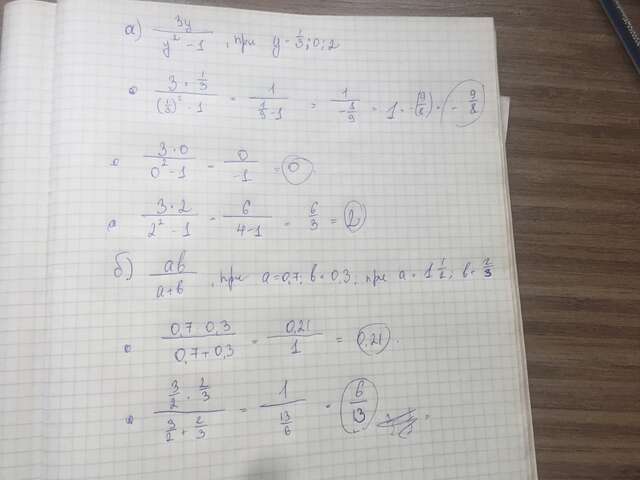 а) 3y / y² - 1 , при y = 1/3; 0; 2
(3 · 1/3) / ((1/3)² - 1) = 1 / (1/9 - 1) = 1 / (-8/9) = 1 · (-9/8) = -9/8
(3 · 0) / (0² - 1) = 0 / -1 = 0
(3 · 2) / (2² - 1) = 6 / (4 - 1) = 6/3 = 2
б) ab / a+b , при a = 0,7, b = 0,3, при a = 1 1/2; b = 2/3
(0,7 · 0,3) / (0,7 + 0,3) = 0,21 / 1 = 0,21.
(3/2 · 2/3) / (3/2 + 2/3) = 1 / (13/6) = 6/13